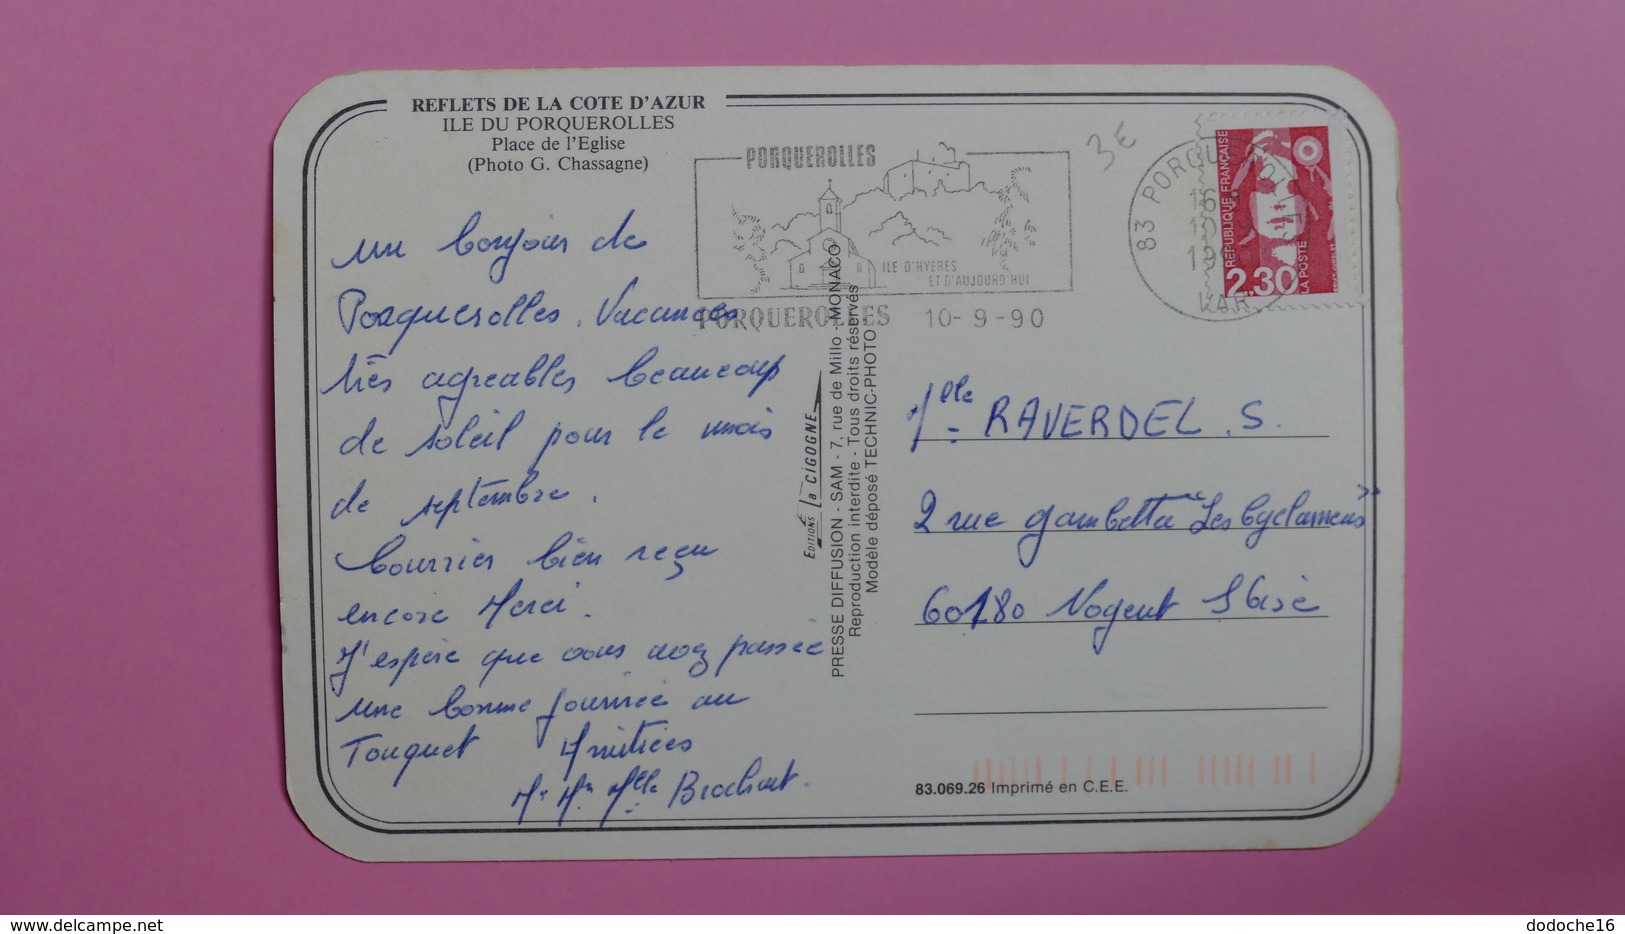 REFLETS DE LA COTE D'AZUR
ILE DU PORQUEROLLES
Place de l'Eglise
(Photo G. Chassagne)
un bonjour de
Porquerolles. Vacances
très agréables beaucoup
de soleil pour le mois
de septembre.
Courrier bien reçu
encore Merci.
J'espère que vous avez passée
une bonne journée au
Touquet Amitiées
Mr Mm Mlle Brochart.
EDITIONS La CIGOGNE
PRESSE DIFFUSION - SAM - 7, rue de Millo - MONACO
Reproduction interdite - Tous droits réservés
Modèle déposé TECHNIC-PHOTO
PORQUEROLLES
ILE D'HYERES
ET D'AUJOURD'HUI
PORQUEROLLES 10-9-90
3E
83 PORQU
16
10
19
VAR
REPUBLIQUE FRANÇAISE
2,30
LA POSTE
Mlle RAVERDEL. S.
2 rue gambetta "Les Cyclamens"
60180 Nogent S/Oise
83.069.26 Imprimé en C.E.E.
www.delcampe.net
dodoche16